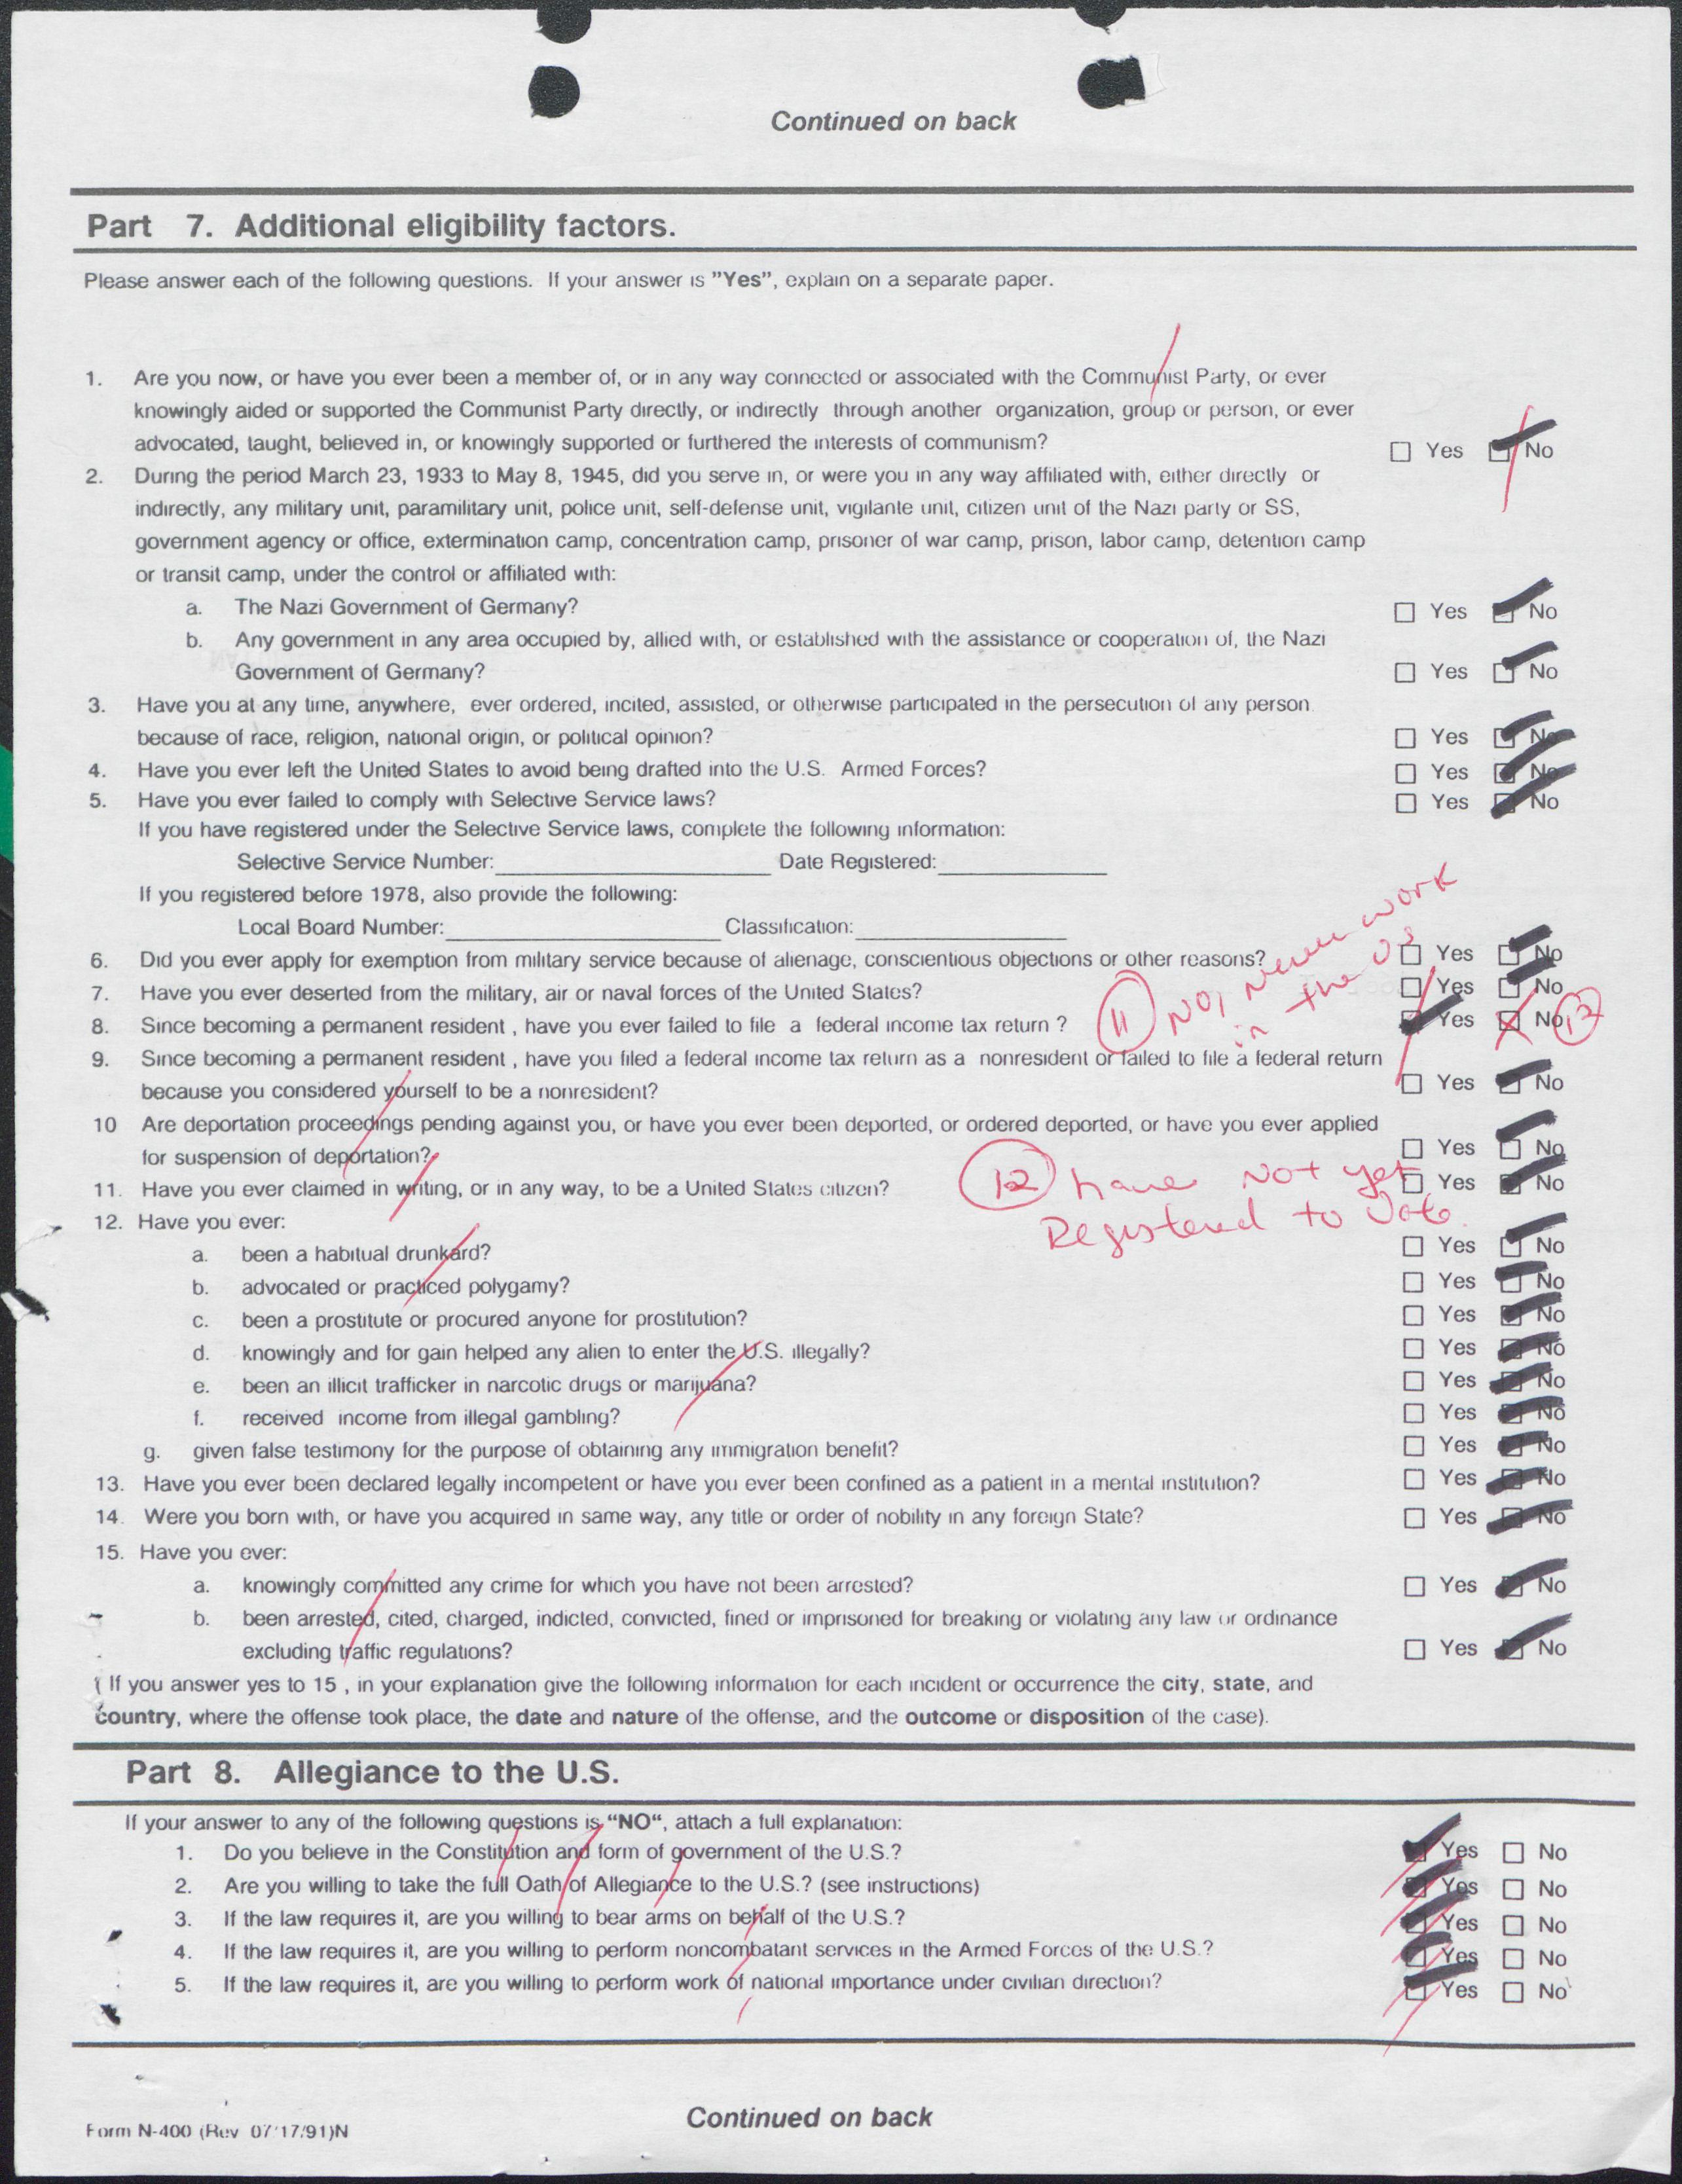 Continued on back
Part 7. Additional eligibility factors.
Please answer each of the following questions. If your answer is "Yes", explain on a separate paper.
1. Are you now, or have you ever been a member of, or in any way connected or associated with the Communist Party, or ever
knowingly aided or supported the Communist Party directly, or indirectly through another organization, group or person, or ever
advocated, taught, believed in, or knowingly supported or furthered the interests of communism? Yes No
2. During the period March 23, 1933 to May 8, 1945, did you serve in, or were you in any way affiliated with, either directly or
indirectly, any military unit, paramilitary unit, police unit, self-defense unit, vigilante unit, citizen unit of the Nazi party or SS,
government agency or office, extermination camp, concentration camp, prisoner of war camp, prison, labor camp, detention camp
or transit camp, under the control or affiliated with:
a. The Nazi Government of Germany? Yes No
b. Any government in any area occupied by, allied with, or established with the assistance or cooperation of, the Nazi
Government of Germany? Yes No
3. Have you at any time, anywhere, ever ordered, incited, assisted, or otherwise participated in the persecution of any person
because of race, religion, national origin, or political opinion? Yes No
4. Have you ever left the United States to avoid being drafted into the U.S. Armed Forces? Yes No
5. Have you ever failed to comply with Selective Service laws? Yes No
If you have registered under the Selective Service laws, complete the following information:
Selective Service Number: Date Registered:
If you registered before 1978, also provide the following:
Local Board Number: Classification:
6. Did you ever apply for exemption from military service because of alienage, conscientious objections or other reasons? Yes No
7. Have you ever deserted from the military, air or naval forces of the United States? Yes No
8. Since becoming a permanent resident , have you ever failed to file a federal income tax return ? Yes No
11 No, never work
in the US
12
9. Since becoming a permanent resident , have you filed a federal income tax return as a nonresident or failed to file a federal return
because you considered yourself to be a nonresident? Yes No
10 Are deportation proceedings pending against you, or have you ever been deported, or ordered deported, or have you ever applied
for suspension of deportation? Yes No
11. Have you ever claimed in writing, or in any way, to be a United States citizen? Yes No
12 have Not yet
Registered to Vote.
12. Have you ever:
a. been a habitual drunkard? Yes No
b. advocated or practiced polygamy? Yes No
c. been a prostitute or procured anyone for prostitution? Yes No
d. knowingly and for gain helped any alien to enter the U.S. illegally? Yes No
e. been an illicit trafficker in narcotic drugs or marijuana? Yes No
f. received income from illegal gambling? Yes No
g. given false testimony for the purpose of obtaining any immigration benefit? Yes No
13. Have you ever been declared legally incompetent or have you ever been confined as a patient in a mental institution? Yes No
14. Were you born with, or have you acquired in same way, any title or order of nobility in any foreign State? Yes No
15. Have you ever:
a. knowingly committed any crime for which you have not been arrested? Yes No
b. been arrested, cited, charged, indicted, convicted, fined or imprisoned for breaking or violating any law or ordinance
excluding traffic regulations? Yes No
( If you answer yes to 15 , in your explanation give the following information for each incident or occurrence the city, state, and
country, where the offense took place, the date and nature of the offense, and the outcome or disposition of the case).
Part 8. Allegiance to the U.S.
If your answer to any of the following questions is "NO", attach a full explanation:
1. Do you believe in the Constitution and form of government of the U.S.? Yes No
2. Are you willing to take the full Oath of Allegiance to the U.S.? (see instructions) Yes No
3. If the law requires it, are you willing to bear arms on behalf of the U.S.? Yes No
4. If the law requires it, are you willing to perform noncombatant services in the Armed Forces of the U.S.? Yes No
5. If the law requires it, are you willing to perform work of national importance under civilian direction? Yes No
Form N-400 (Rev 07/17/91)N
Continued on back